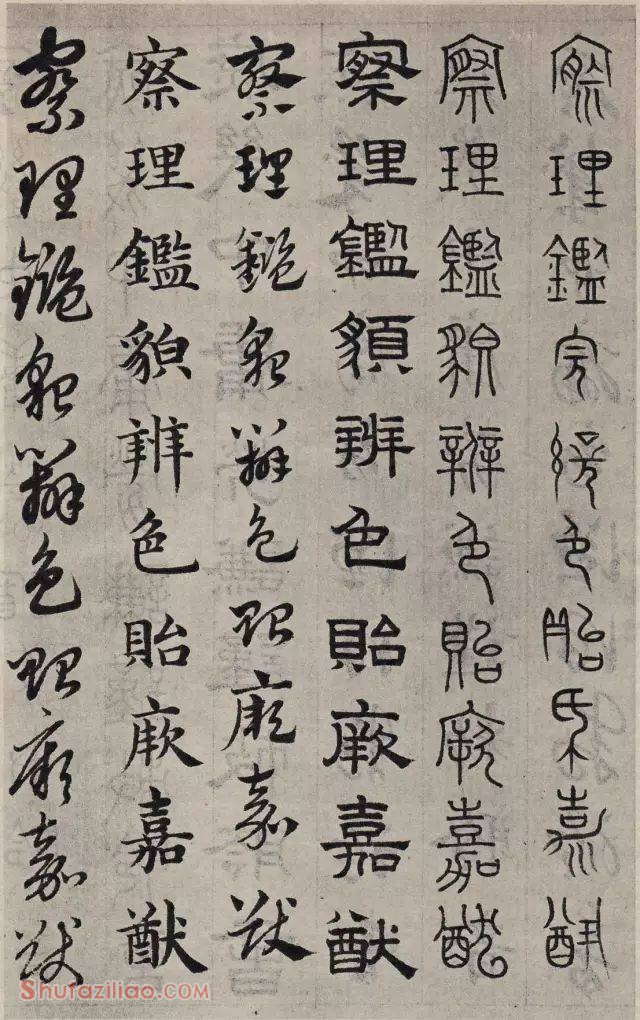 察理鑑皃辨色貽厥嘉猷
察理鑑貌辨色貽厥嘉猷
察理鑑貌辨色貽厥嘉猷
察理鑑貌辨色貽厥嘉猷
察理鑑貌辨色貽厥嘉猷
察理鑑貌辨色貽厥嘉猷
Shufaziliao.com